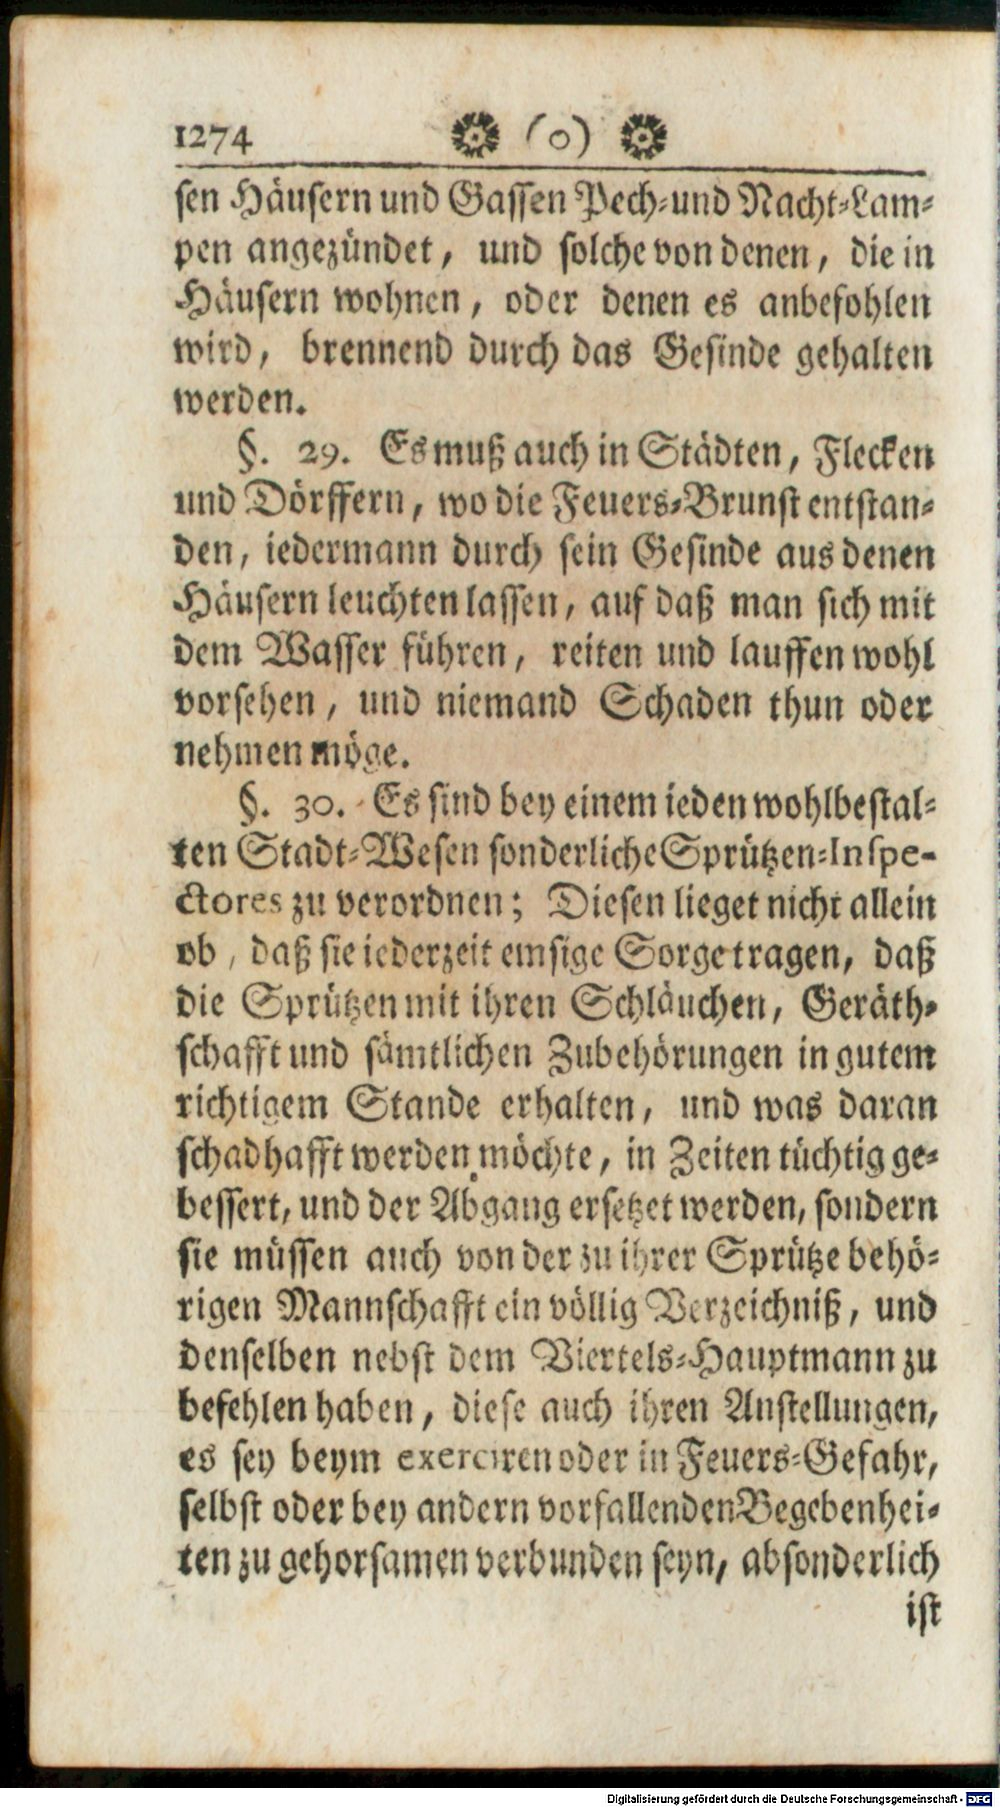 1274 (o)
sen Häusern und Gassen Pech-und Nacht-Lam-
pen angezündet, und solche von denen, die in
Häusern wohnen, oder denen es anbefohlen
wird, brennend durch das Gesinde gehalten
werden.
§. 29. Es muß auch in Städten, Flecken
und Dörffern, wo die Feuers-Brunst entstan-
den, iedermann durch sein Gesinde aus denen
Häusern leuchten lassen, auf daß man sich mit
dem Wasser führen, reiten und lauffen wohl
vorsehen, und niemand Schaden thun oder
nehmen möge.
§. 30. Es sind bey einem ieden wohlbestal-
ten Stadt-Wesen sonderliche Sprützen-Inspe-
ctores zu verordnen; Diesen lieget nicht allein
ob, daß sie iederzeit emsige Sorge tragen, daß
die Sprützen mit ihren Schläuchen, Geräth-
schafft und sämtlichen Zubehörungen in gutem
richtigem Stande erhalten, und was daran
schadhafft werden möchte, in Zeiten tüchtig ge-
bessert, und der Abgang ersetzet werden, sondern
sie müssen auch von der zu ihrer Sprütze behö-
rigen Mannschafft ein völlig Verzeichniß, und
denselben nebst dem Viertels-Hauptmann zu
befehlen haben, diese auch ihren Anstellungen,
es sey beym exerciren oder in Feuers-Gefahr,
selbst oder bey andern vorfallenden Begebenhei-
ten zu gehorsamen verbunden seyn, absonderlich
ist
Digitalisierung gefördert durch die Deutsche Forschungsgemeinschaft - DFG